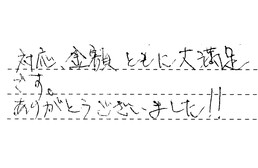 対応、金額ともに大満足
です。
ありがとうございました!!